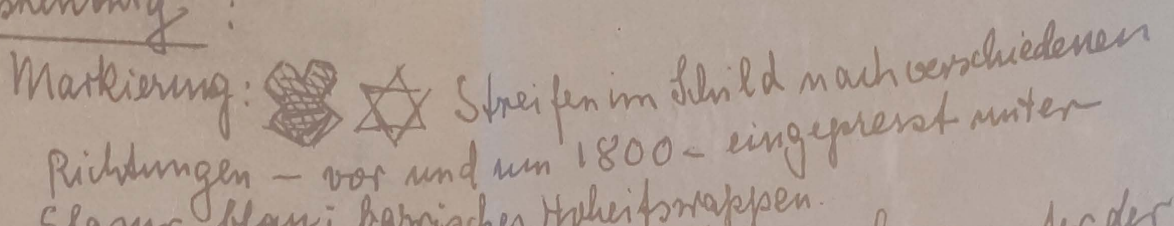 Markierung: Streifen im Schild nach verschiedenen
Richtungen – vor und um 1800 – eingepresst unter
blau: bayrisches Hoheitswappen.
der